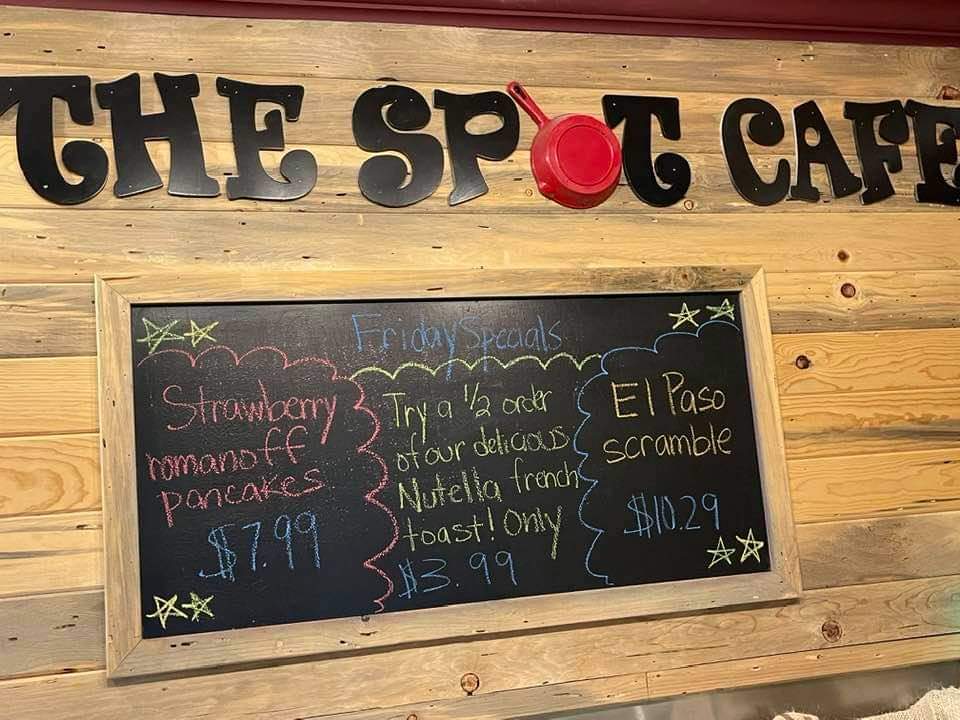 THE SPOT CAFE
Friday Specials
Strawberry
romanoff
pancakes
$7.99
Try a 1/2 order
of our delicious
Nutella french
toast! Only
$3.99
El Paso
scramble
$10.29